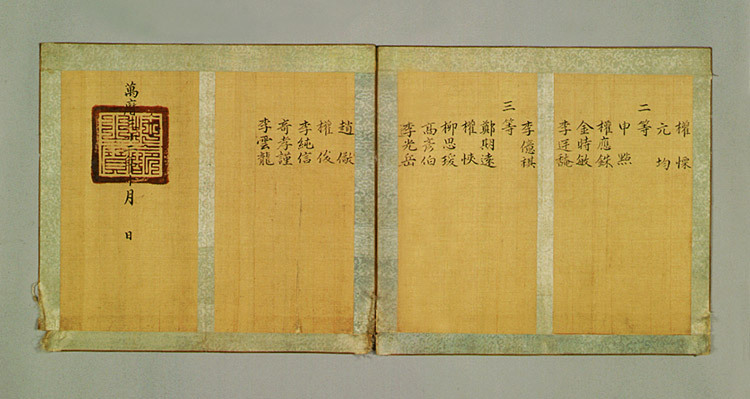 權慄
元均
二等
申㸃
權應銖
金時敏
李廷馣
李億祺
三等
鄭期遠
權悏
柳思瑗
高彥伯
李光岳
趙儆
權俊
李純信
奇孝謹
李雲龍
萬曆 月 日